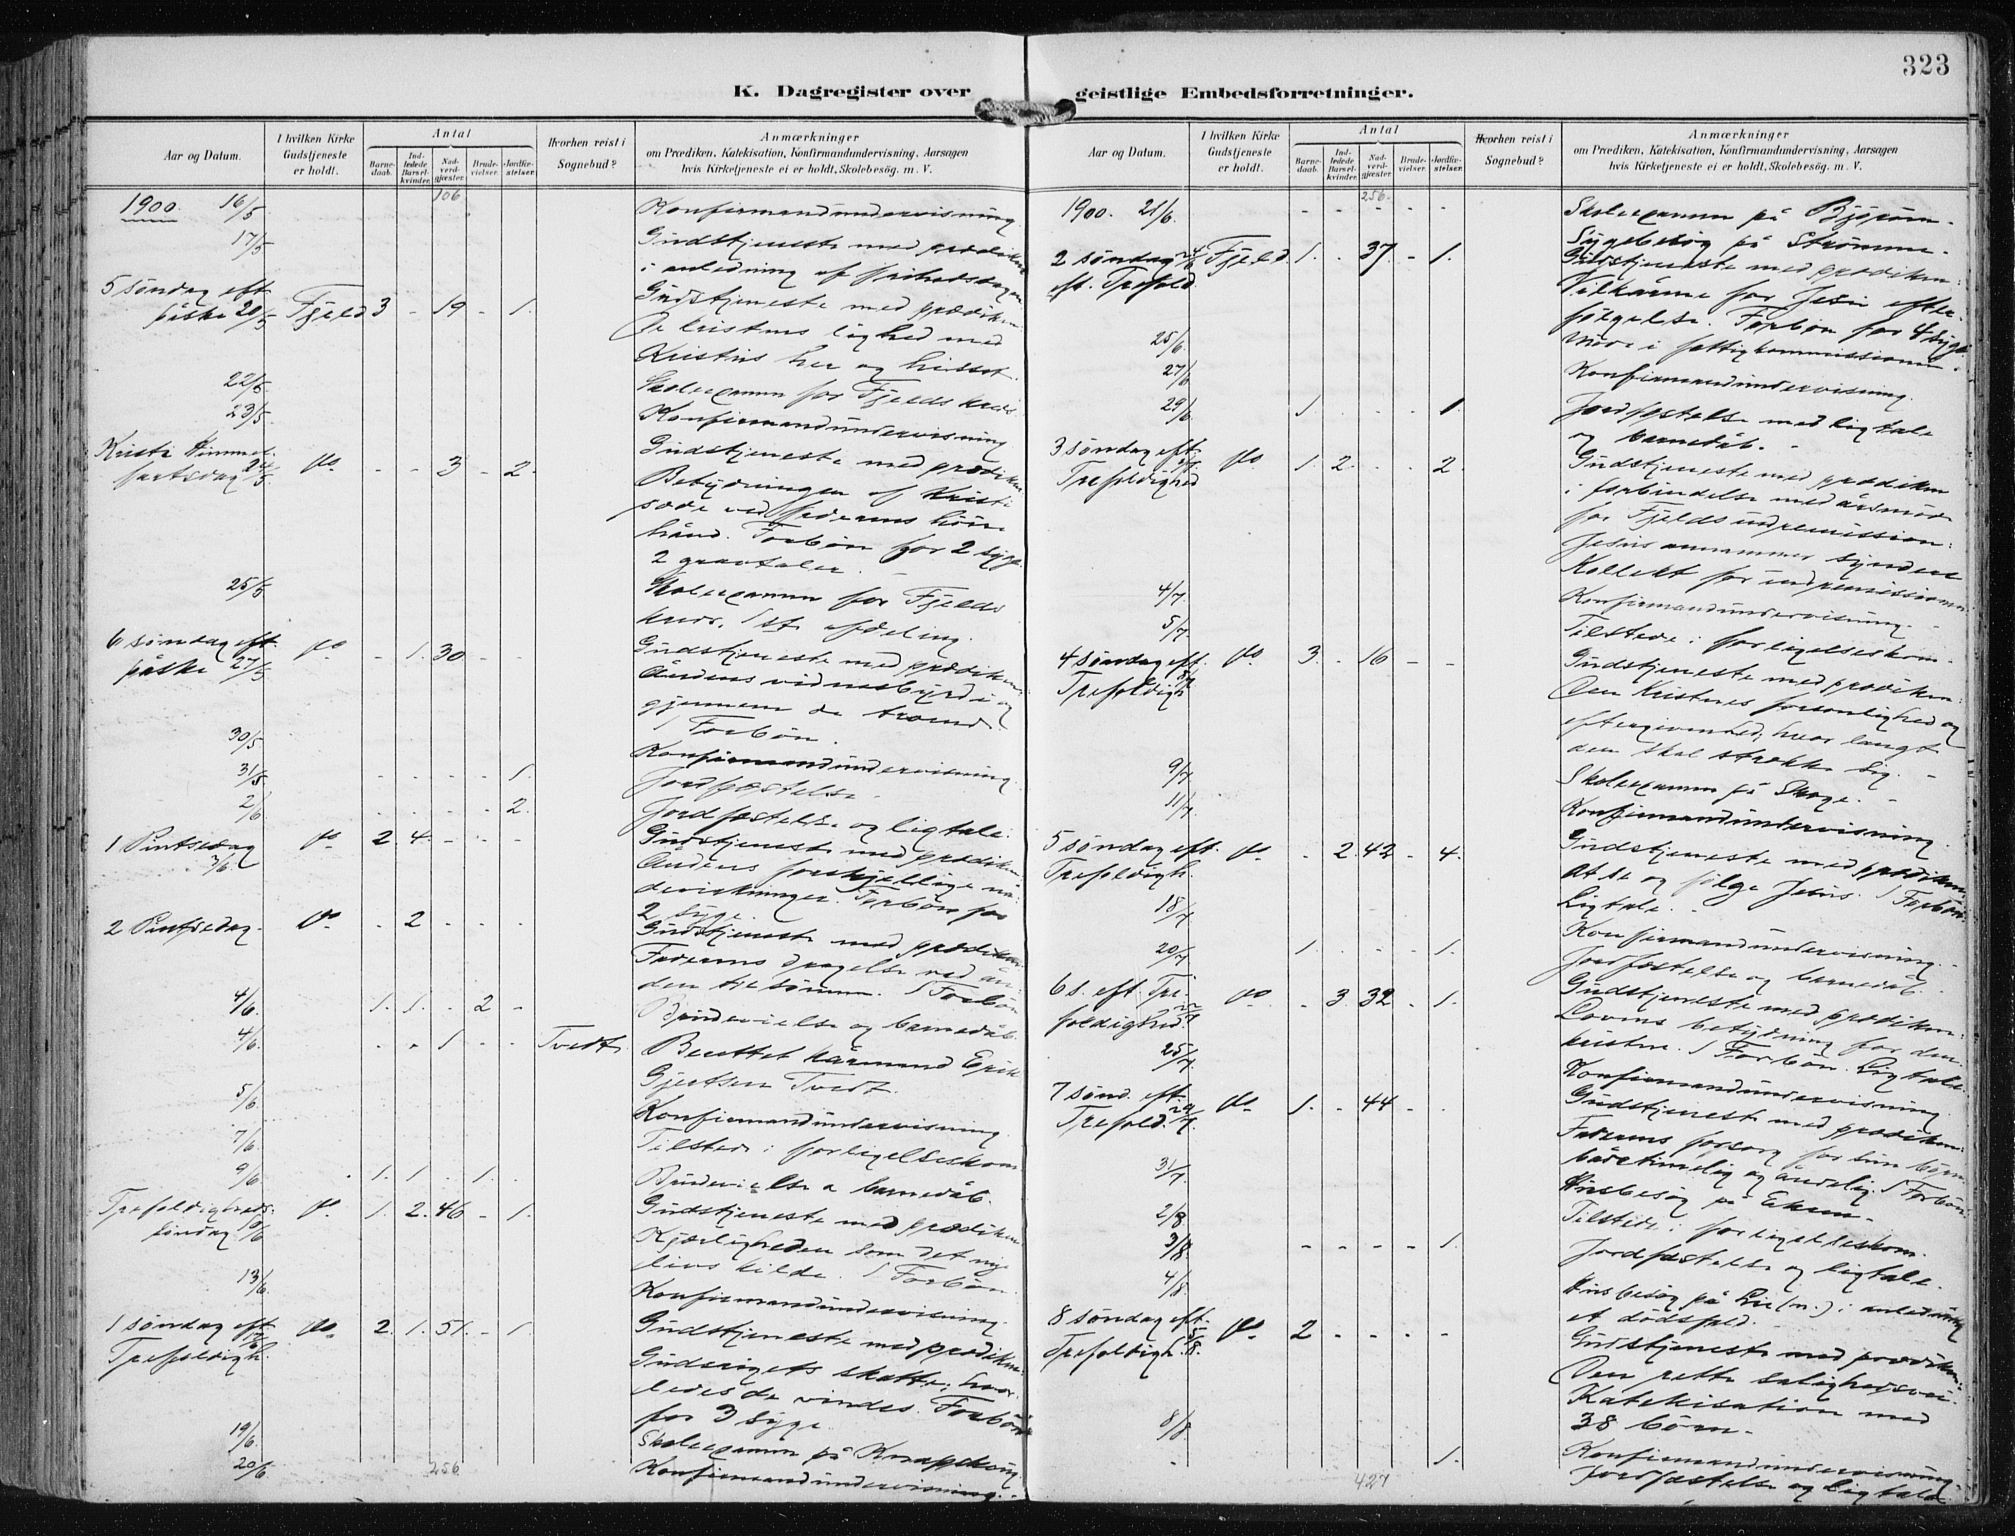 323
K. Dagregister over geistlige Embedsforretninger.
Aar og Datum.
I hvilken Kirke Gudstjeneste er holdt.
Antal
Barne-daab.
Ind-ledede Barsel-kvinder.
Nad-verd-gjæster.
Brude-vielser.
Jordfæ-stelser.
Hvorhen reist i Sognebud?
Anmærkninger
om Prædiken, Katekisation, Konfirmandundervisning, Aarsagen
hvis Kirketjeneste ei er holdt, Skolebesøg. m. V.
106
1900. 16/5 Konfirmandundervisning
17/5 Gudstjeneste med prædiken
i anledning af frihedsdagen
5 søndag eft. påske 20/5 Fjeld 3 - 19 - 1. Gudstjeneste med prædiken:
De kristnes lighed med
Kristus her og hisset.
22/5 Skoleexamen for Fjelds kreds.
23/5 Konfirmandundervisning
Kristi Himmel-fartsdag 24/5 do - - 3 - 2. Gudstjeneste med prædiken:
Betydningen af Kristi
sæde ved faderens høire
hånd. Forbøn for 2 syge.
2 gravtaler.
25/5 Skoleexamen for Fjelds
kreds. 1ste afdeling.
6 søndag eft. påske 27/5 do - 1. 30 - - Gudstjeneste med prædiken:
Åndens vidnesbyrd i og
gjennem de troende
1 Forbøn.
30/5 Konfirmandundervisning.
31/5 - - - - 1. Jordfæstelse.
2/6 - - - - 2. Jordfæstelse og ligtale.
1 Pintsedag 3/6. do 2 4. - - - Gudstjeneste med prædiken:
Åndens forskjellige nå-
devirkninger. Forbøn for
2 syge.
2 Pintsedag. do - 2 - - - Gudstjeneste med prædiken:
Faderens dragelse ved ån-
den til sønnen. 1 Forbøn
4/6. 1. 1. - 2 - Brudevielse og barnedåb.
4/6. - - 1 - - Tvedt. Berettet kårmand Erik
Gjertsen Tvedt.
5/6. Konfirmandundervisning.
7/6. Tilstede i forligelseskom.
9/6 1. 1. - 1. Brudevielse a barnedåb.
Trefoldigheds-søndag 10/6 do 1. 2. 46 - 1. Gudstjeneste med prædiken
Kjærligheden som det nye
livs kilde. 1 Forbøn.
13/6. Konfirmandundervisning.
1 søndag eft. Trefoldigh. 17/6 do 2. 1. 51. - 1. Gudstjeneste med prædiken:
Gudsrigets skatte, hvor-
ledes de vindes. Forbøn
for 3 syge.
19/6. Skoleexamen på Knappskog
20/6 Konfirmandundervisning.
256
Aar og Datum.
I hvilken Kirke Gudstjeneste er holdt.
Antal
Barne-daab.
Ind-ledede Barsel-kvinder.
Nad-verd-gjæster.
Brude-vielser.
Jordfæ-stelser.
Hvorhen reist i Sognebud?
Anmærkninger
om Prædiken, Katekisation, Konfirmandundervisning, Aarsagen
hvis Kirketjeneste ei er holdt, Skolebesøg. m. V.
256.
1900. 21/6. - - - - - Skoleexamen på Bjerøen.
Sygebesøg på Strømme.
2 søndag eft. Trefold. 24/6 Fjeld 1. - 37. - 1. Gudstjeneste med prædiken:
Vilkårene for Jesu efter-
følgelse. Forbøn for 4 syge.
25/6. Møde i fattigkommissionen.
27/6 Konfirmandundervisning.
29/6. 1. - - - 1. Jordfæstelse med ligtale
og barnedåb.
3 søndag eft. Trefoldighed 1/7 do 1. 2. - - 2. Gudstjeneste med prædiken
i forbindelse med årsmøde
for Fjelds indremission:
Jesus annammer syndere
Kollekt for indremissionen.
4/7. Konfirmandundervisning.
5/7. Tilstede i forligelseskom.
4 søndag eft. Trefoldigh. 8/7 do 3. - 16 - - Gudstjeneste med prædiken:
Den Kristnes forsonlighed og
eftergivenhed, hvor langt
den skal strække sig.
9/7 Skoleexamen på Skoge.
11/7. Konfirmandundervisning.
5 søndag eft. Trefoldigh. do - 2. 42 - 4. Gudstjeneste med prædiken:
At se og følge Jesus. 1 Forbøn.
Ligtale.
18/7 Konfirmandundervisning.
20/7 1. - - - 1. Jordfæstelse og barnedåb.
6 s. eft. Tre-foldighed. 22/7 do - 3. 32 - 1. Gudstjeneste med prædiken:
Lovens betydning for den
kristne. 1 Forbøn. Ligtale.
25/7. Konfirmandundervisning.
7 sønd. eft. Trefold. 29/7. do 1. - 44 - - Gudstjeneste med prædiken:
Faderens forsorg for sine børn,
både timelig og åndelig. 1 Forbøn.
31/7 Husbesøg på Ekren.
2/8 Tilstede i forligelseskom.
3/8. - - - - 1. Jordfæstelse og ligtale.
4/8 Husbesøg på Lie (n.) i anledning
et dødsfald.
8 søndag eft. Trefoldigh. 5/8. do 2 - - - - Gudstjeneste med prædiken:
Den rette salighedsvei.
Katekisation med
38 børn.
8/8 Konfirmandundervisning
- 1. Jordfæstelse og ligtale.
427